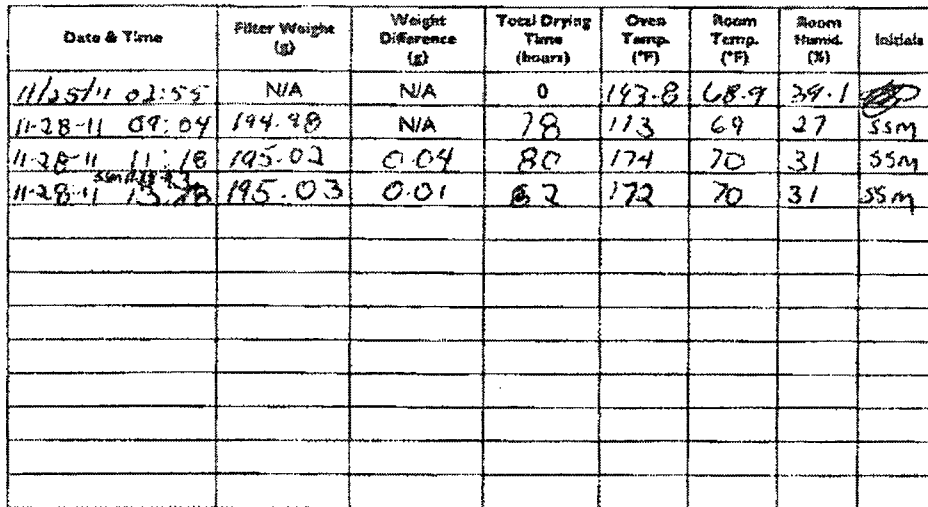 Date & Time Filter Weight (g) Weight Difference (g) Total Drying Time (hours) Oven Temp. (°F) Room Temp. (°F) Room Humid. (%) Initials
11/25/11 02:55 N/A N/A 0 143.8 68.9 39.1
11-28-11 09:04 194.98 N/A 78 113 69 27 SSM
11-28-11 11:18 195.02 0.04 80 174 70 31 SSM
11-28-11 195.03 0.01 82 172 70 31 SSM